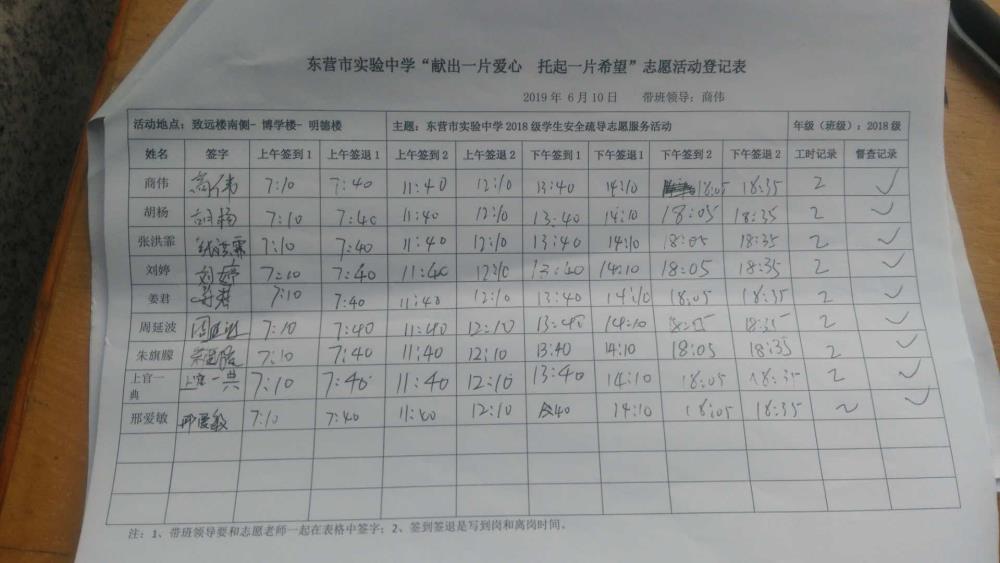 东营市实验中学“献出一片爱心 托起一片希望”志愿活动登记表
2019 年 6 月 10 日 带班领导：商伟
活动地点：致远楼南侧- 博学楼- 明德楼 主题：东营市实验中学 2018 级学生安全疏导志愿服务活动 年级（班级）：2018 级
姓名 签字 上午签到 1 上午签退 1 上午签到 2 上午签退 2 下午签到 1 下午签退1 下午签到 2 下午签退 2 工时记录 督查记录
商伟 商伟 7:10 7:40 11:40 12:10 13:40 14:10 18:05 18:35 2 ✓
胡杨 胡杨 7:10 7:40 11:40 12:10 13:40 14:10 18:05 18:35 2 ✓
张洪霏 张洪霏 7:10 7:40 11:40 12:10 13:40 14:10 18:05 18:35 2 ✓
刘婷 刘婷 7:10 7:40 11:40 12:10 13:40 14:10 18:05 18:35 2 ✓
姜君 姜君 7:10 7:40 11:40 12:10 13:40 14:10 18:05 18:35 2 ✓
周延波 周延波 7:10 7:40 11:40 12:10 13:40 14:10 18:05 18:35 2 ✓
朱旗朦 7:10 7:40 11:40 12:10 13:40 14:10 18:05 18:35 2 ✓
上官一典 上官一典 7:10 7:40 11:40 12:10 13:40 14:10 18:05 18:35 2 ✓
邢爱敏 邢爱敏 7:10 7:40 11:40 12:10 14:10 18:05 18:35 2 ✓
注：1、带班领导要和志愿老师一起在表格中签字；2、签到签退是写到岗和离岗时间。